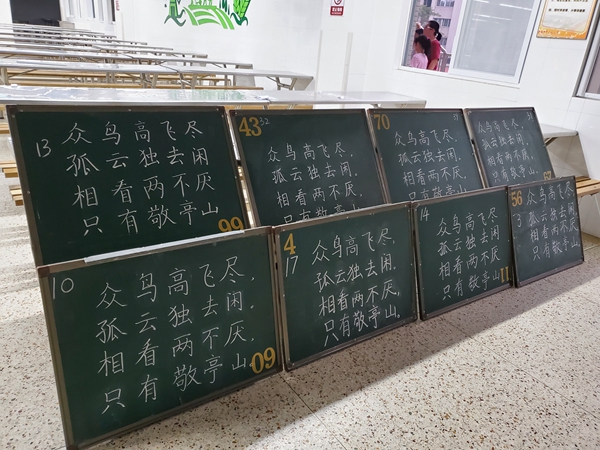 13
众鸟高飞尽
孤云独去闲
相看两不厌
只有敬亭山
99
43 32
众鸟高飞尽,
孤云独去闲。
相看两不厌,
只有敬亭山
70
众鸟高飞尽,
孤云独去闲,
相看两不厌,
只有敬亭山
众鸟高飞尽,
孤云独去闲。
相看两不厌,
只有敬亭山
10
众鸟高飞尽,
孤云独去闲。
相看两不厌,
只有敬亭山
09
4
17
众鸟高飞尽,
孤云独去闲。
相看两不厌,
只有敬亭山。
14
众鸟高飞尽,
孤云独去闲。
相看两不厌,
只有敬亭山。
11
56
众鸟高飞尽,
孤云独去闲。
相看两不厌,
只有敬亭山。